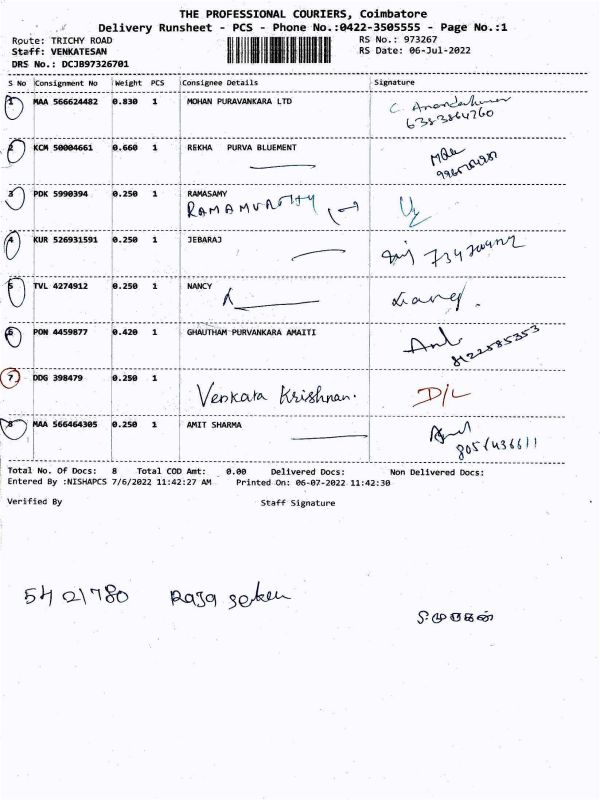 THE PROFESSIONAL COURIERS, Coimbatore
Delivery Runsheet - PCS - Phone No.:0422-3505555 - Page No.:1
Route: TRICHY ROAD RS No.: 973267
Staff: VENKATESAN RS Date: 06-Jul-2022
DRS No.: DCJB97326701
S No Consignment No Weight PCS Consignee Details Signature
1 MAA 566624482 0.830 1 MOHAN PURAVANKARA LTD C. Anandakumar
6383864760
2 KCM 50004661 0.660 1 REKHA PURVA BLUEMENT
3 PDK 5990394 0.250 1 RAMASAMY
RAMAMURTHY
4 KUR 526931591 0.250 1 JEBARAJ
5 TVL 4274912 0.250 1 NANCY
6 PON 4459877 0.420 1 GHAUTHAM PURVANKARA AMAITI
8122585353
7 DDG 398479 0.250 1
Venkata Krishnan. D/L
8 MAA 566464305 0.250 1 AMIT SHARMA
Total No. Of Docs: 8 Total COD Amt: 0.00 Delivered Docs: Non Delivered Docs:
Entered By :NISHAPCS 7/6/2022 11:42:27 AM Printed On: 06-07-2022 11:42:30
Verified By Staff Signature
Raja seker